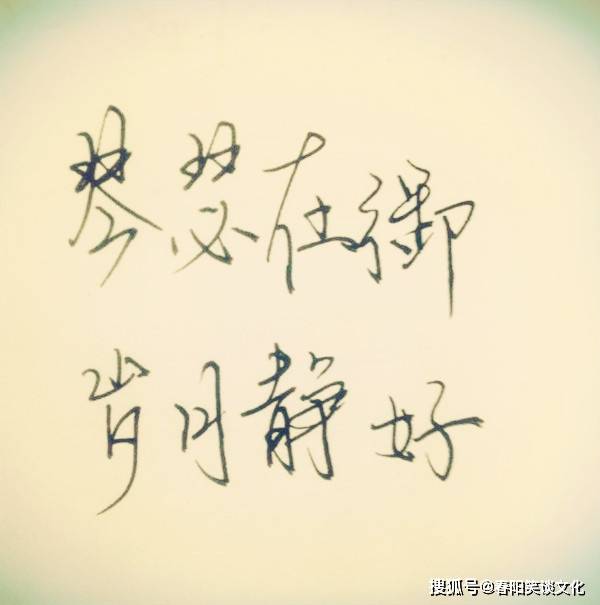 琴瑟在御
岁月静好
搜狐号@春阳笑谈文化